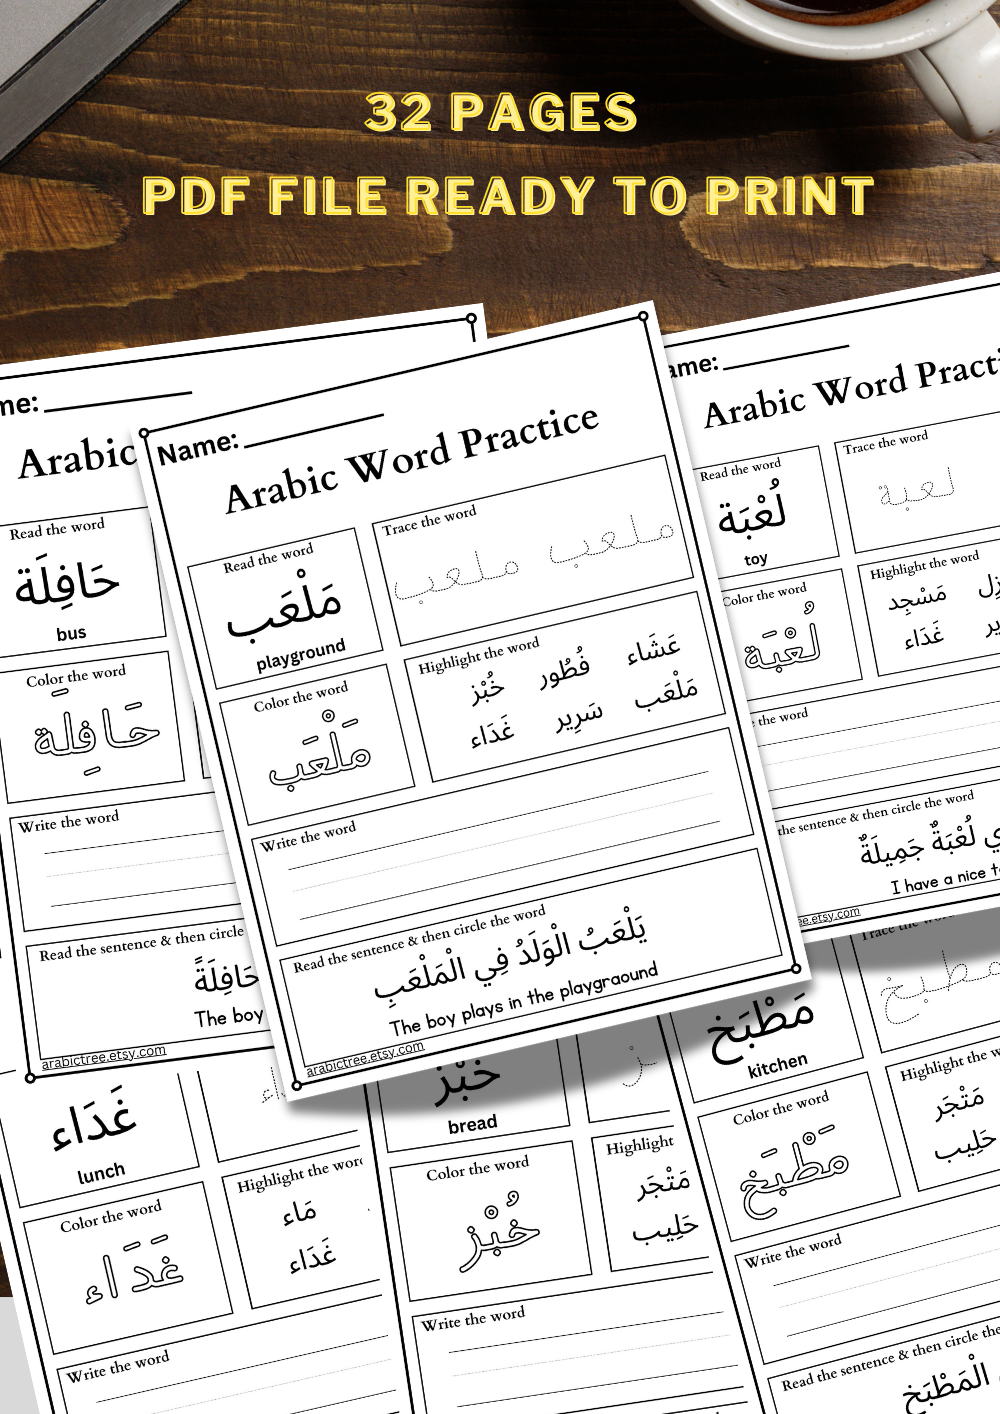 32 PAGES
PDF FILE READY TO PRINT
Name:
Arabic Word Practice
Read the word
مَلْعَب
playground
Trace the word
ملعب ملعب
Color the word
مَلْعَب
Highlight the word
عَشَاء فُطُور خُبْز
مَلْعَب سَرِير غَدَاء
Write the word
Read the sentence & then circle the word
يَلْعَبُ الْوَلَدُ فِي الْمَلْعَبِ
The boy plays in the playgraound
arabictree.etsy.com
me:
Arabic
Read the word
حَافِلَة
bus
Color the word
حَافِلَة
Write the word
Read the sentence & then circle
حَافِلَةً
The boy
arabictree.etsy.com
ame:
Arabic Word Practi
Read the word
لُعْبَة
toy
Trace the word
لعبة
Color the word
لُعْبَة
Highlight the word
مَسْجِد
غَدَاء
the word
the sentence & then circle the word
لُعْبَةٌ جَمِيلَةٌ
I have a nice to
ree.etsy.com
غَدَاء
lunch
Color the word
غَدَاء
Highlight the word
مَاء
غَدَاء
Write the word
خُبْز
bread
Color the word
خُبْز
Highlight
مَتْجَر
حَلِيب
Write the word
مَطْبَخ
kitchen
Trace the word
مطبخ
Color the word
مَطْبَخ
Highlight the w
مَتْجَر
حَلِيب
Write the word
Read the sentence & then circle the
الْمَطْبَخ